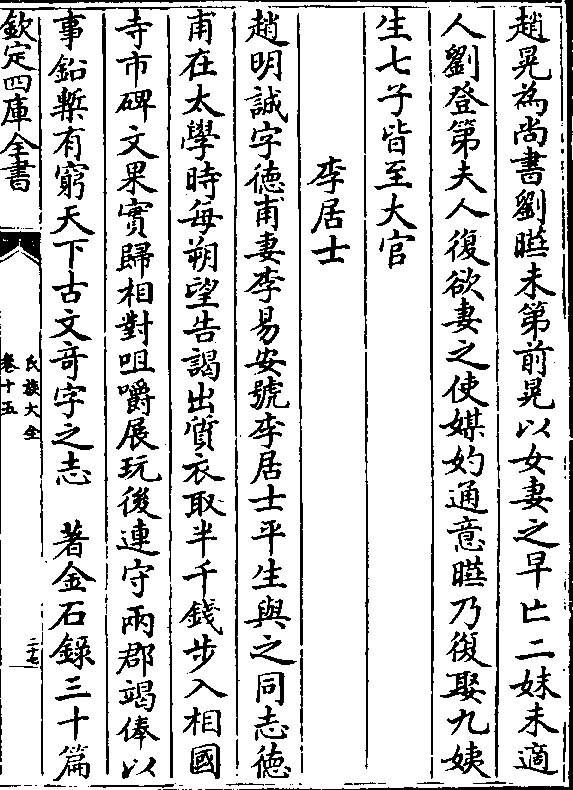 趙晃為尚書劉㬢未第前晃以女妻之早亡二妹未適
人劉登第夫人復欲妻之使媒妁通意㬢乃復娶九姨
生七子皆至大官
李居士
趙明誠字德甫妻李易安號李居士平生與之同志德
甫在太學時每朔望告謁出質衣取半千錢步入相國
寺市碑文果實歸相對咀嚼展玩後連守兩郡竭俸以
事鉛槧有窮天下古文奇字之志　著金石錄三十篇
欽定四庫全書
氏族大全
卷十五
二十七